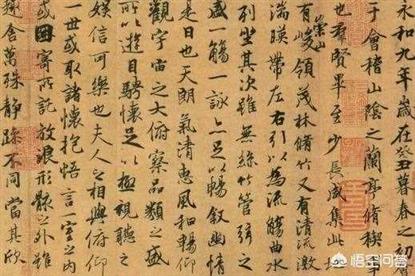 永和九年歲在癸丑暮春之初
于會稽山陰之蘭亭脩稧
也群賢畢至少長咸集此
崇山
有峻領茂林脩竹又有清流激
湍暎帶左右引以為流觴曲水
列坐其次雖無絲竹管弦之
盛一觴一詠亦足以暢敘幽情
是日也天朗氣清惠風和暢仰
觀宇宙之大俯察品類之盛
所以遊目騁懷足以極視聽之
娛信可樂也夫人之相與俯仰
一世或取諸懷抱悟言一室之內
或因寄所託放浪形骸之外雖
趣舍萬殊靜躁不同當其欣
悟空问答